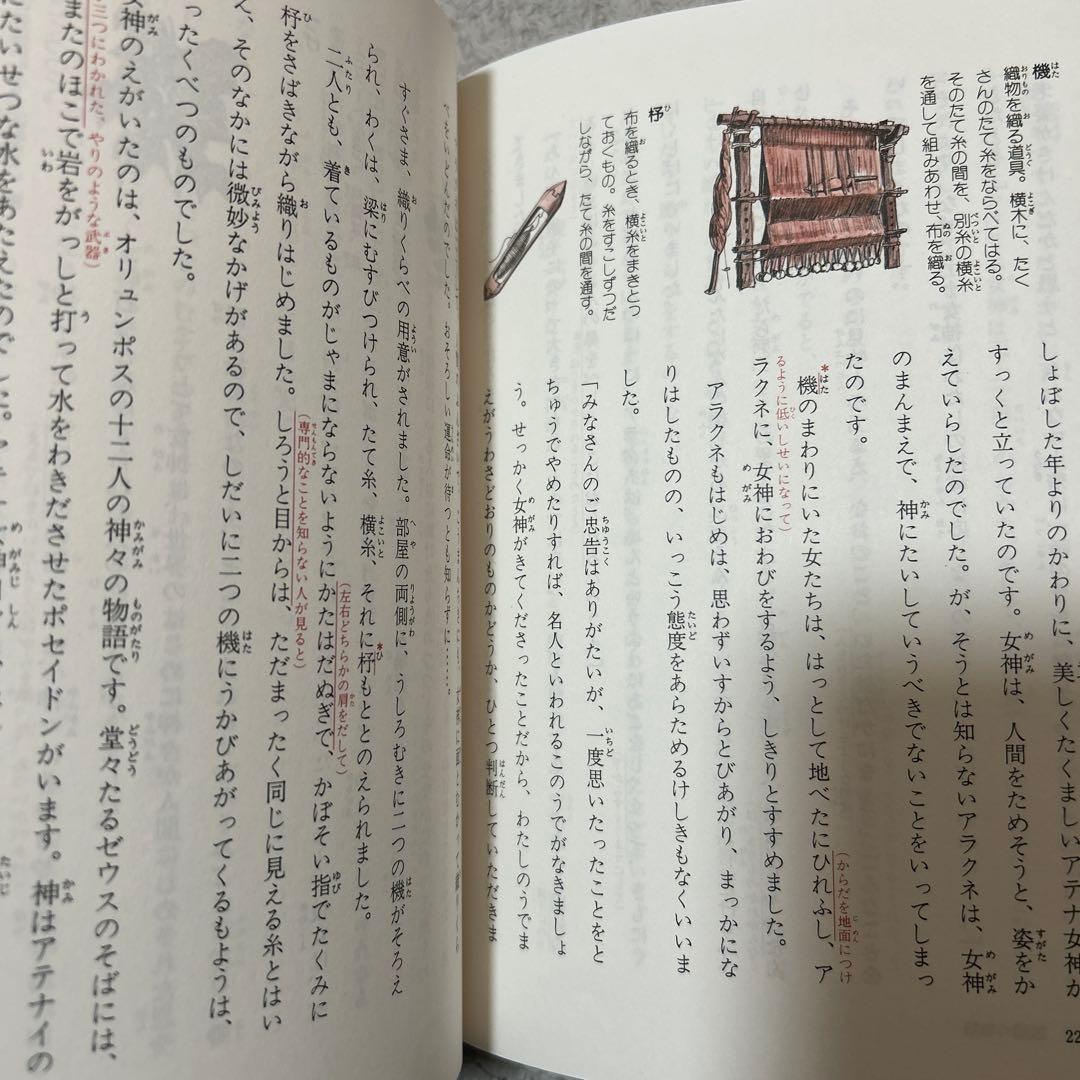 機
織物を織る道具。横木に、たく
さんのたて糸をならべてはる。
そのたて糸の間を、別糸の横糸
を通して組みあわせ、布を織る。
杼
布を織るとき、横糸をまきとっ
ておくもの。糸をすこしずつだ
しながら、たて糸の間を通す。
しょぼした年よりのかわりに、美しくたくましいアテナ女神が
すっくと立っていたのです。女神は、人間をためそうと、姿をか
えていらしたのでした。が、そうとは知らないアラクネは、女神
のまんまえで、神にたいしていうべきでないことをいってしまっ
たのです。
*機のまわりにいた女たちは、はっとして地べたにひれふし、ア
(からだを地面につけ
るように低いしせいになって)
ラクネに、女神におわびをするよう、しきりとすすめました。
アラクネもはじめは、思わずいすからとびあがり、まっかにな
りはしたものの、いっこう態度をあらためるけしきもなくいいま
した。
「みなさんのご忠告はありがたいが、一度思いたったことをと
ちゅうでやめたりすれば、名人といわれるこのうでがなきましょ
う。せっかく女神がきてくださったことだから、わたしのうでま
えがうわさどおりのものかどうか、ひとつ判断していただきま
22
おそろしい運命が待つとも知らずに……。
すぐさま、織りくらべの用意がされました。部屋の両側に、うしろむきに二つの機がそろえ
られ、わくは、梁にむすびつけられ、たて糸、横糸、それに*杼もととのえられました。
二人とも、着ているものがじゃまにならないようにかたはだぬぎで、かぼそい指でたくみに
(左右どちらかの肩をだして)
杼をさばきながら織りはじめました。しろうと目からは、ただまったく同じに見える糸とはい
(専門的なことを知らない人が見ると)
え、そのなかには微妙なかげがあるので、しだいに二つの機にうかびあがってくるもようは、
ったくべつのものでした。
女神のえがいたのは、オリュンポスの十二人の神々の物語です。堂々たるゼウスのそばには、
三つにわかれた、やりのような武器)
またのほこで岩をがっしと打って水をわきださせたポセイドンがいます。神はアテナイの
にたいせつな水をあたえたのでした。